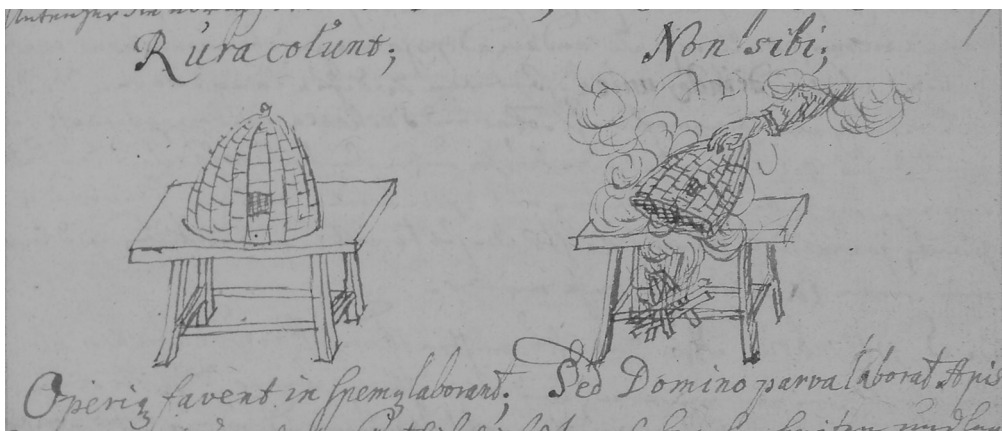 Rura colunt;
Non sibi;
Operiq favent in spemq laborant;
Sed Domino parva laborat Apis